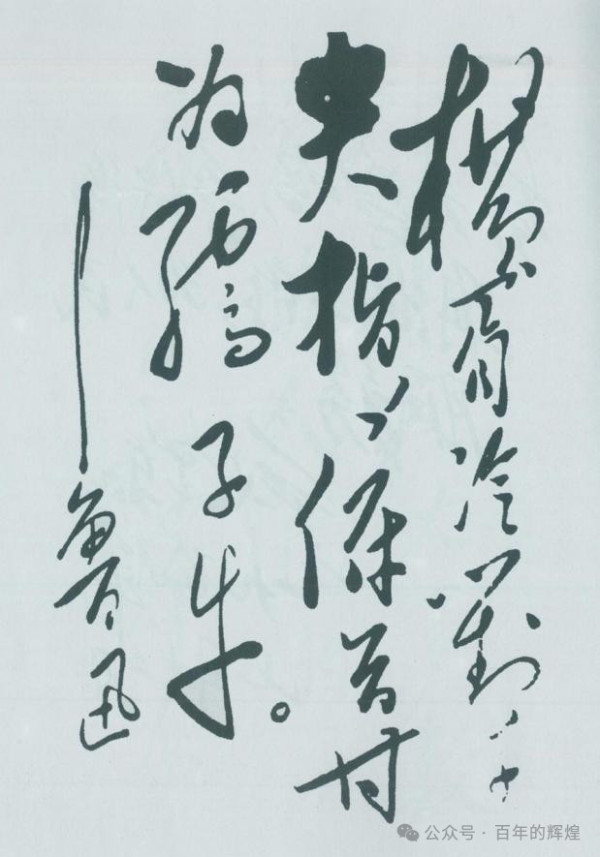 横眉冷對千
夫指,俯首甘
为孺子牛。
——魯迅
公众号·百年的辉煌